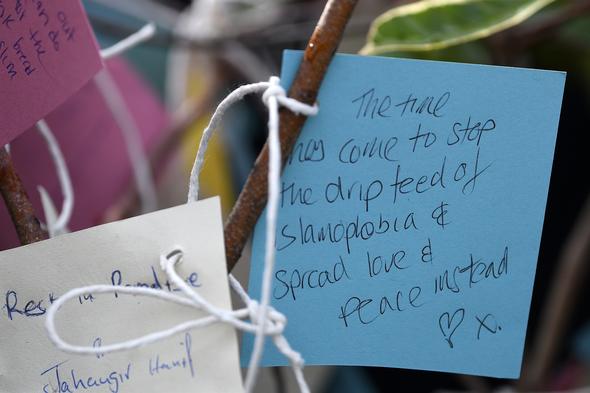 the
The time
has come to stop
the drip feed of
islamophobia &
spread love &
peace instead
♡ x.
Rest in
Jahangir Hanif